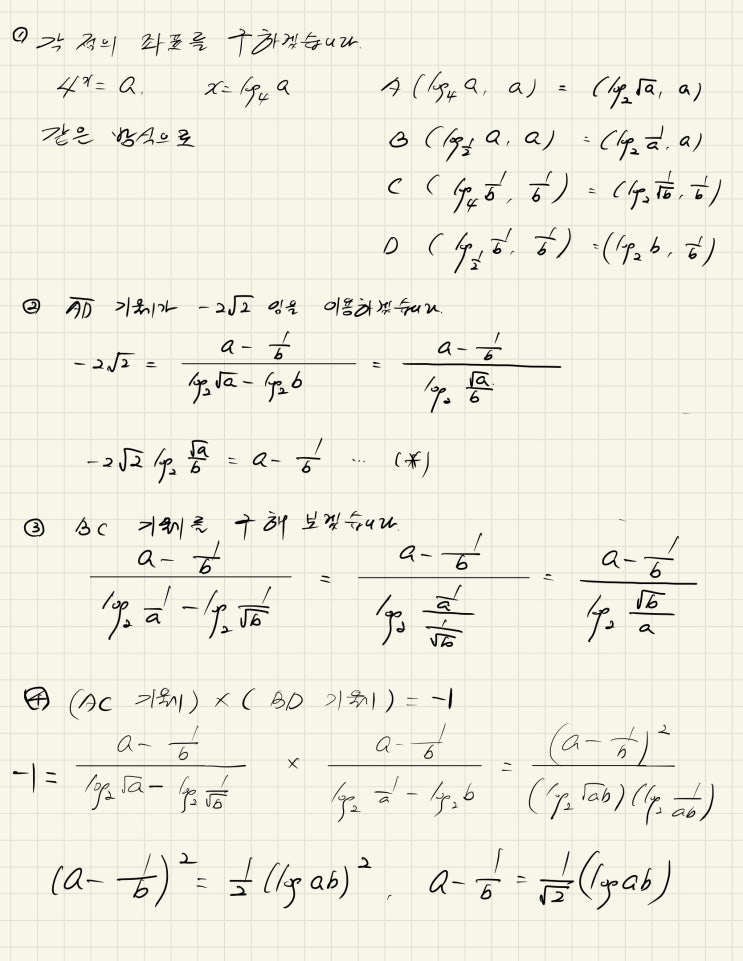 ① 각 점의 좌표를 구하겠습니다.
4^x = a, x = log_4 a A (log_4 a, a) = (log_2 √a, a)
같은 방식으로 B (log_{1/2} a, a) = (log_2 1/a, a)
C (log_4 1/b, 1/b) = (log_2 1/√b, 1/b)
D (log_{1/2} 1/b, 1/b) = (log_2 b, 1/b)
② AD 기울기가 -2√2 임을 이용하겠습니다.
-2√2 = (a - 1/b)/(log_2 √a - log_2 b) = (a - 1/b)/(log_2 √a/b)
-2√2 log_2 √a/b = a - 1/b ... (*)
③ BC 기울기를 구해 보겠습니다.
(a - 1/b)/(log_2 1/a - log_2 1/√b) = (a - 1/b)/(log_2 (1/a)/(1/√b)) = (a - 1/b)/(log_2 √b/a)
④ (AC 기울기) × (BD 기울기) = -1
-1 = (a - 1/b)/(log_2 √a - log_2 1/√b) × (a - 1/b)/(log_2 1/a - log_2 b) = (a - 1/b)^2/((log_2 √ab)(log_2 1/ab))
(a - 1/b)^2 = 1/2 (log ab)^2, a - 1/b = 1/√2 (log ab)